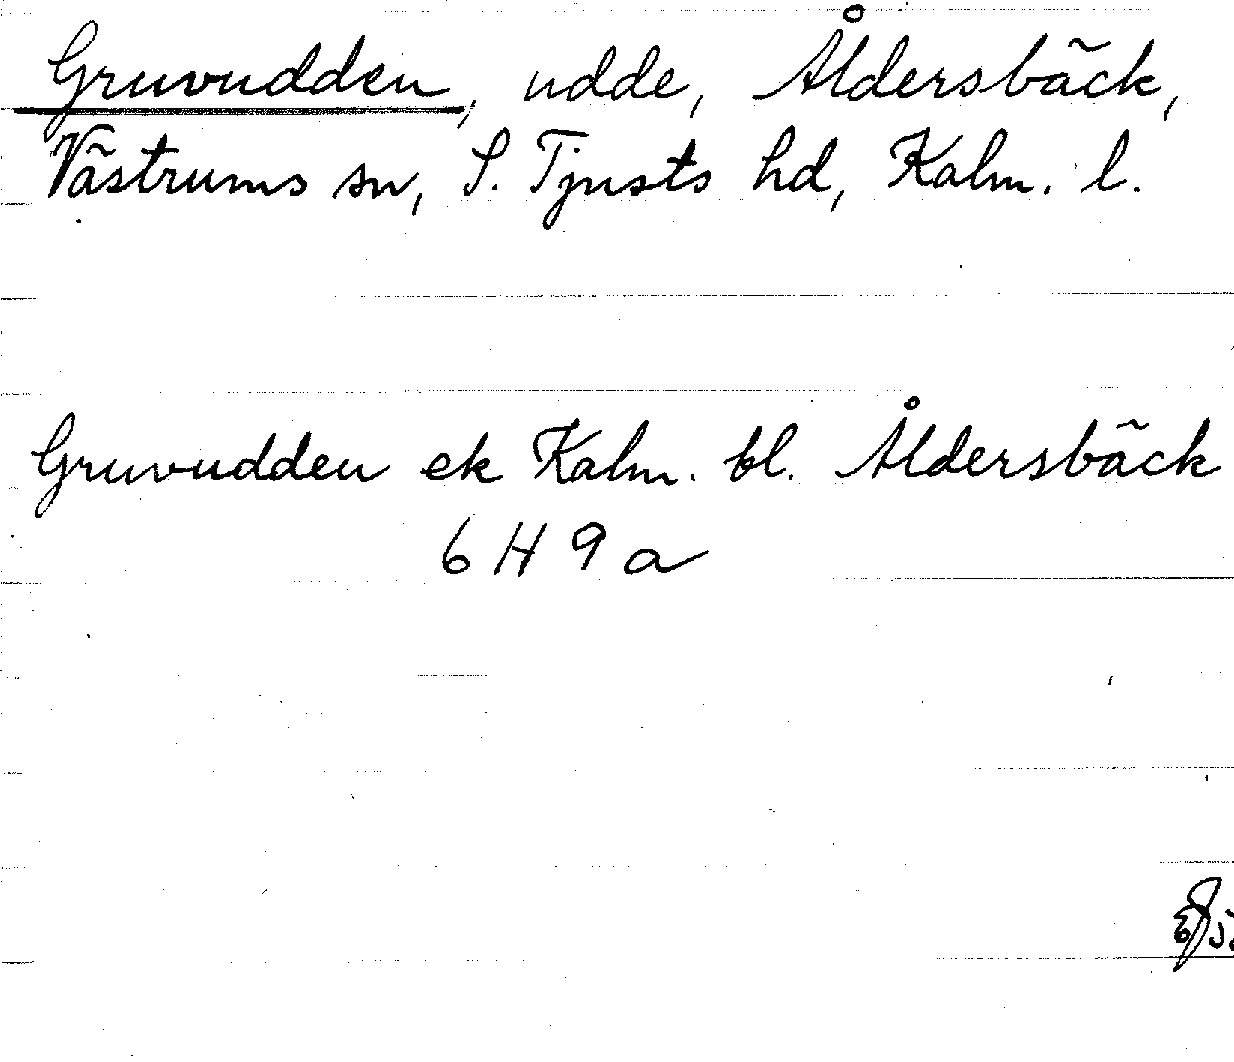 Gruvudden, udde, Åldersbäck,
Västrums sn, S. Tjusts hd, Kalm. l.
Gruvudden ek Kalm. bl. Åldersbäck
6 H 9 a